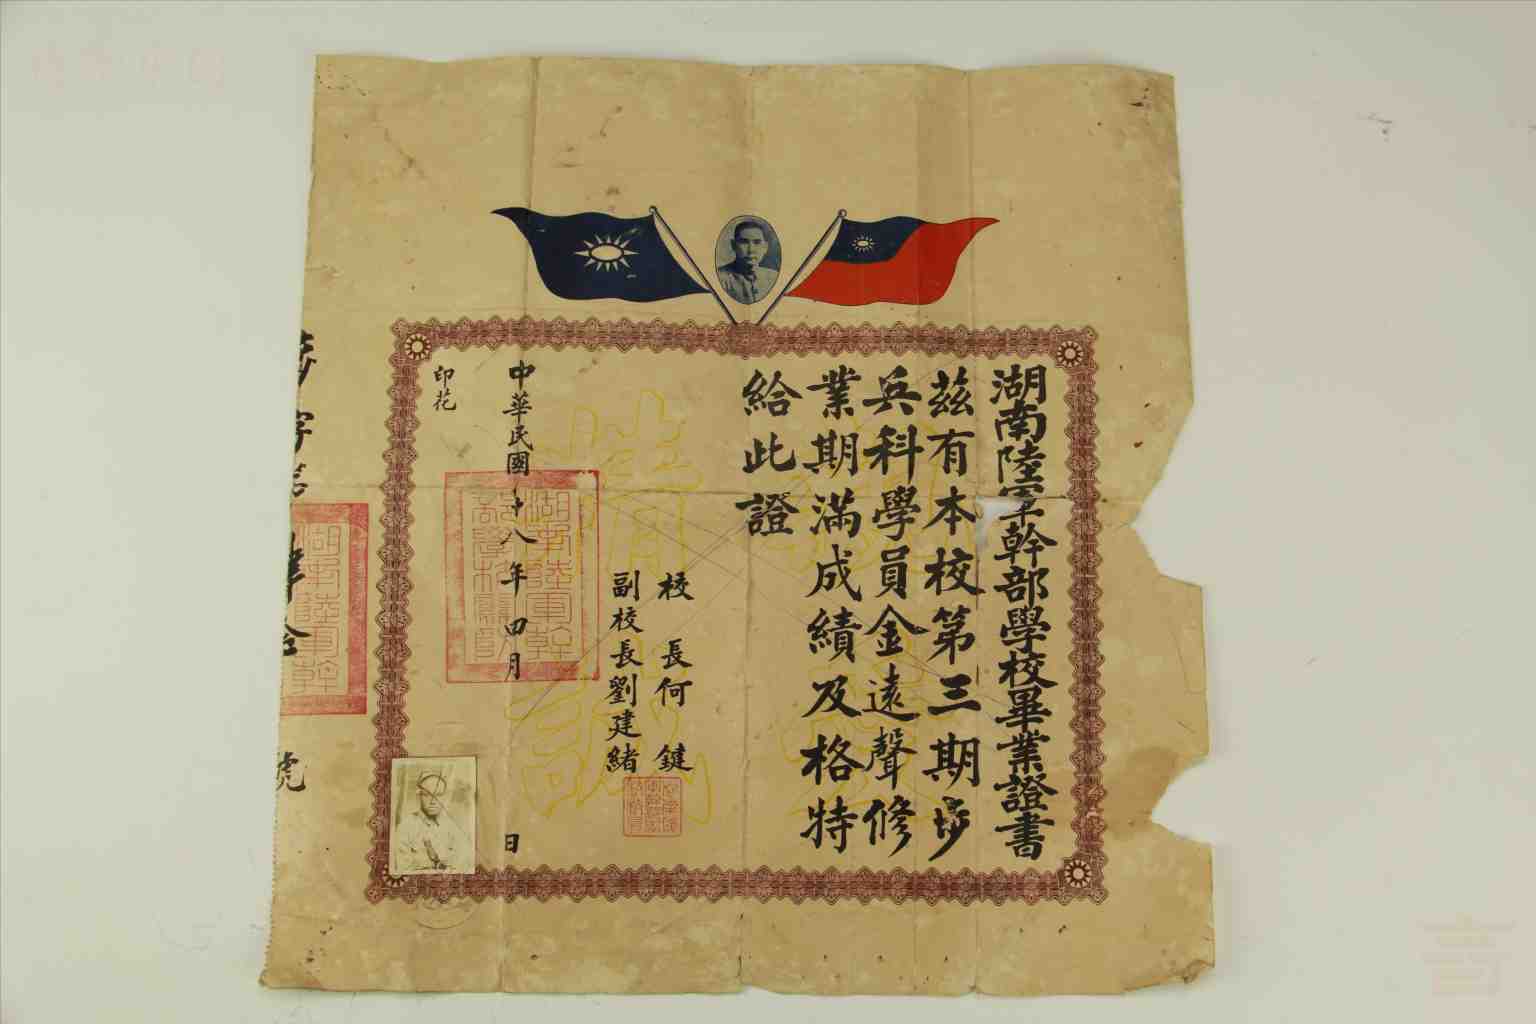 湖南陸軍幹部學校畢業證書
茲有本校第三期步
兵科學員金遠聲修
業期滿成績及格特
給此證
校長何鍵
副校長劉建緒
中華民國十八年四月 日
印花
步字第 肆拾 號
湖南陸軍幹部學校關防
湖南陸軍幹